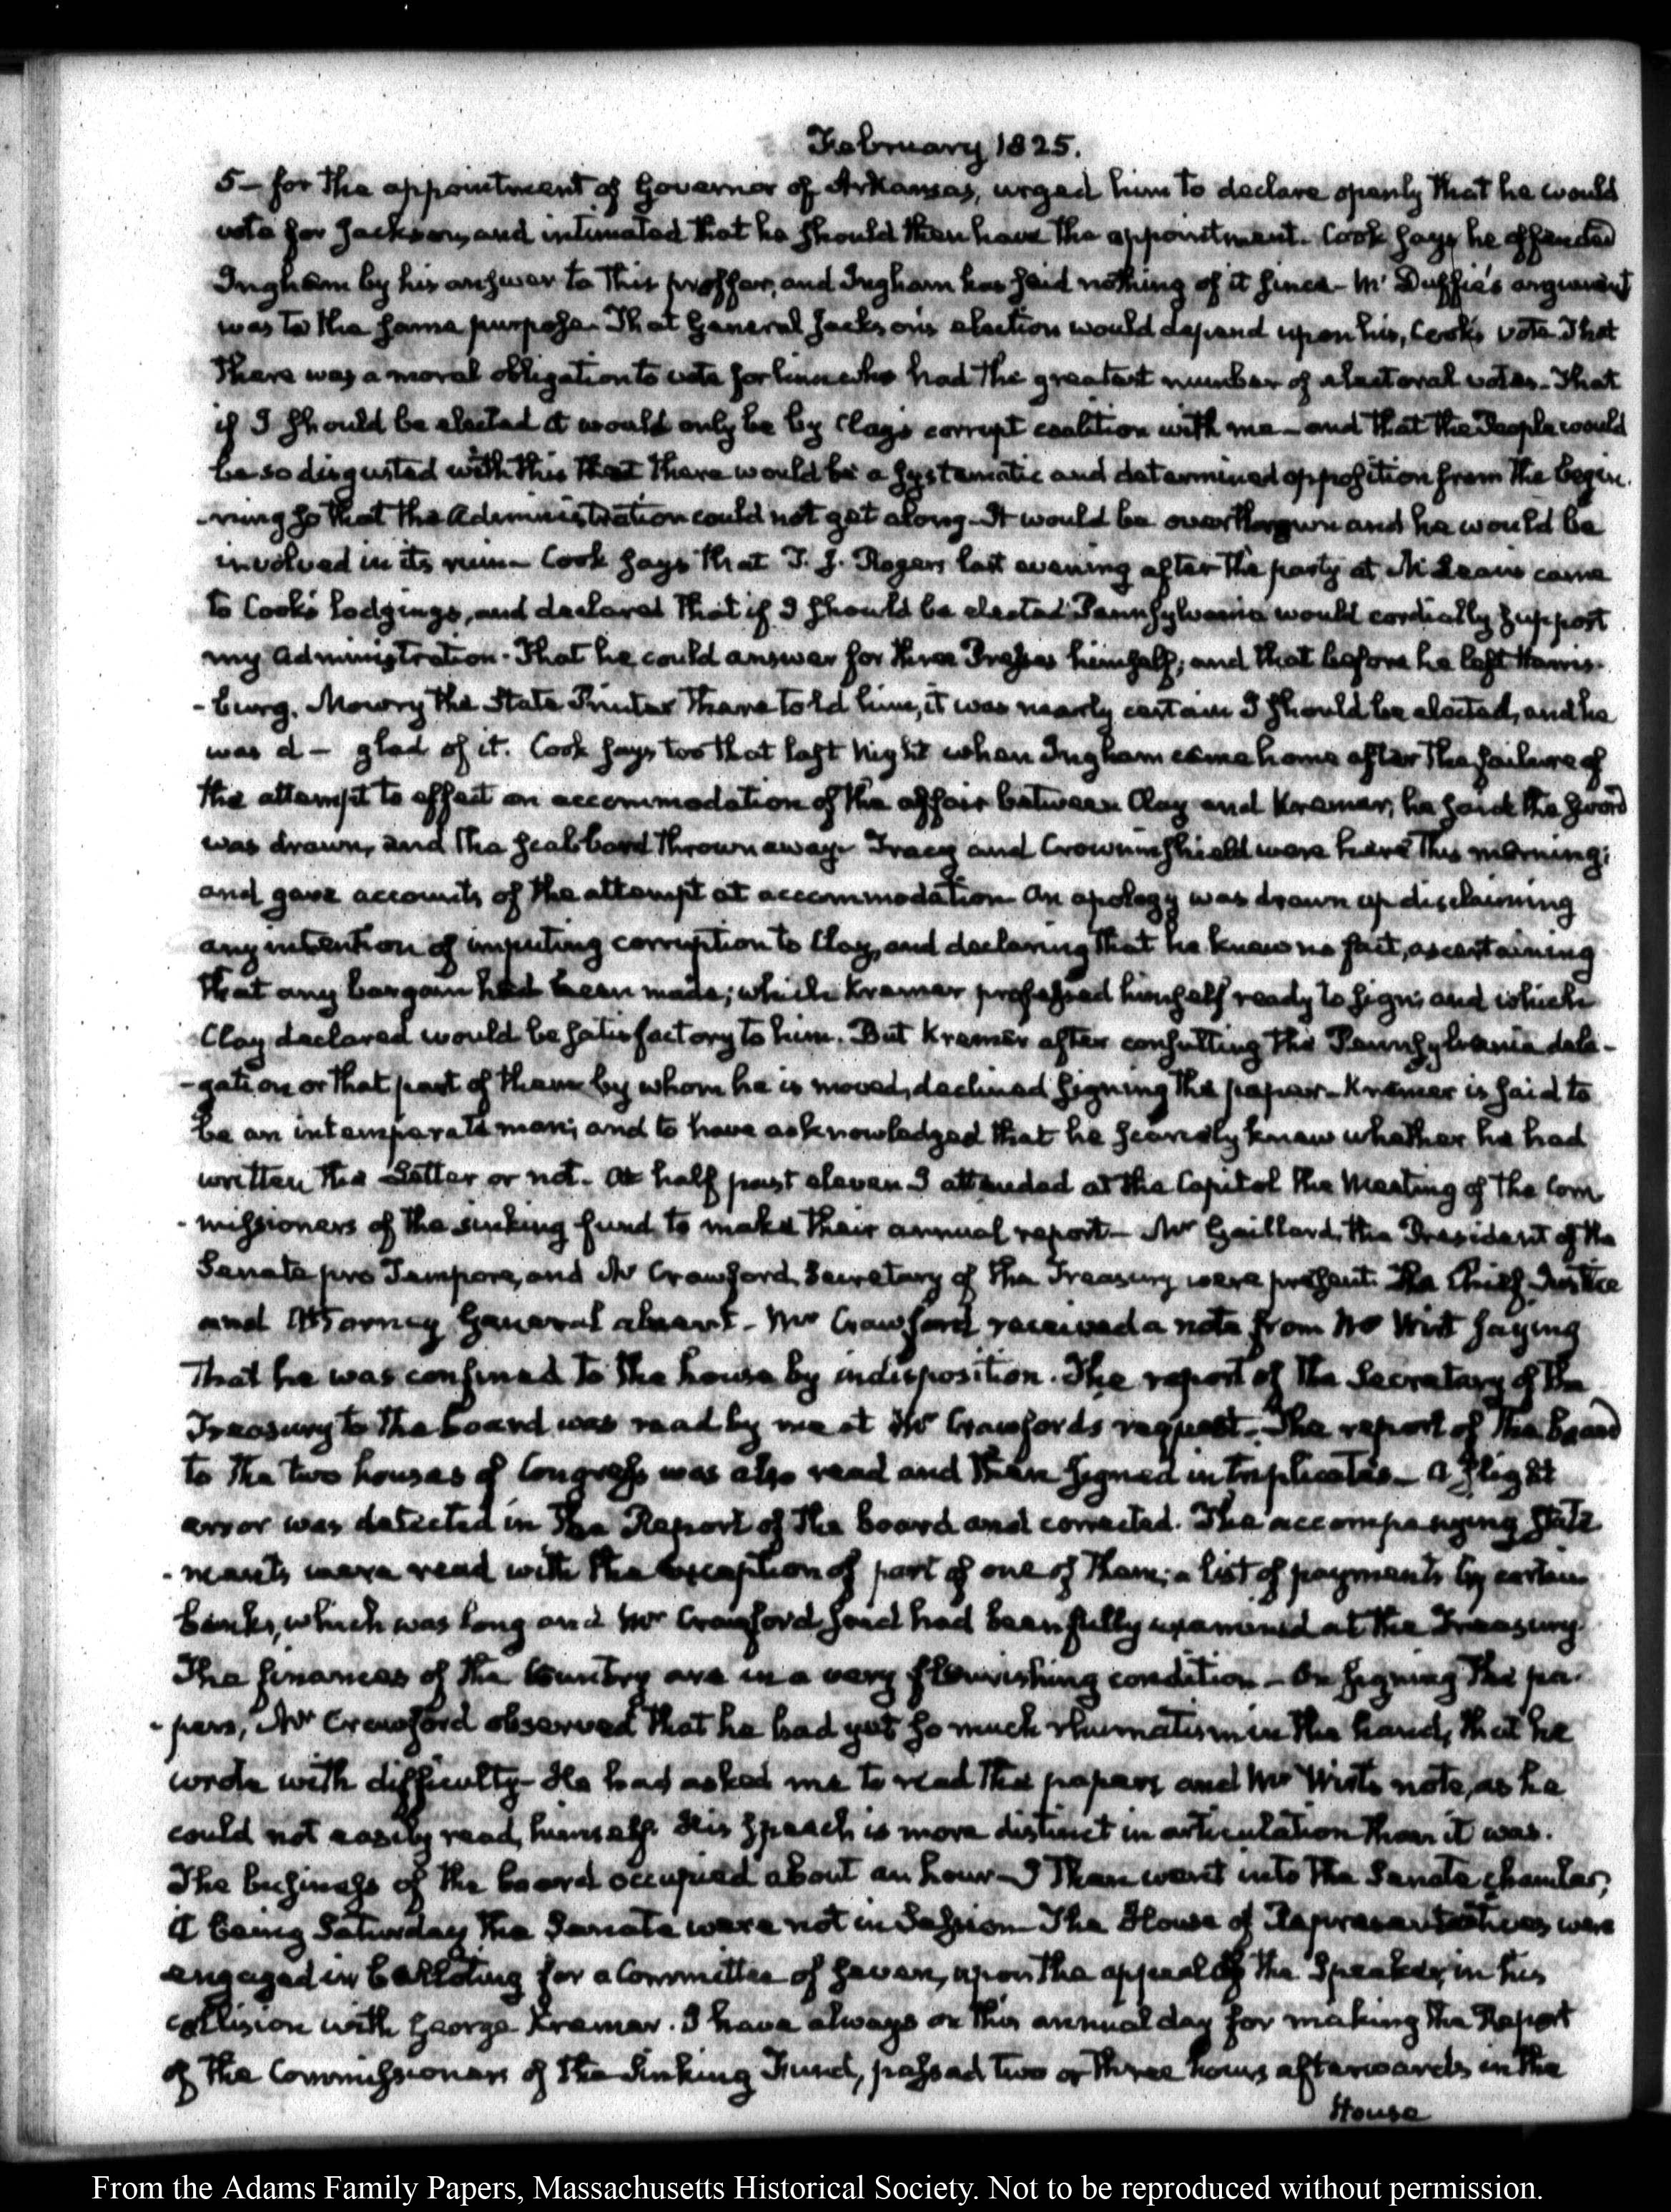 February 1825.
5- for the appointment of Governor of Arkansas, urged him to declare openly that he would
vote for Jackson, and intimated that he should then have the appointment. Cook says he offended
Ingham by his answer to this proffer, and Ingham has said nothing of it since- McDuffie's argument
was to the same purpose. That General Jackson's election would depend upon his, Cook's vote. That
there was a moral obligation to vote for him who had the greatest number of electoral votes- That
if I should be elected it would only be by Clay's corrupt coalition with me- and that the People would
be so disgusted with this that there would be a systematic and determined opposition from the begin-
-ning so that the Administration could not get along- It would be overthrown and he would be
involved in its ruin- Cook says that T. J. Rogers last evening after the party at McLean's came
to Cook's lodgings, and declared that if I should be elected Pennsylvania would cordially support
my Administration. That he could answer for three Presses himself; and that before he left Harris-
-burg, Mowry the State Printer there told him, it was nearly certain I should be elected, and he
was d- glad of it. Cook says too that last Night when Ingham came home after the failure of
the attempt to effect an accommodation of the affair between Clay and Kremer, he said the sword
was drawn, and the scabbard thrown away. Tracy and Crowninshield were here this morning;
and gave accounts of the attempt at accommodation- An apology was drawn up disclaiming
any intention of imputing corruption to Clay, and declaring that he knew no fact, ascertaining
that any bargain had been made; which Kremer professed himself ready to sign; and which
Clay declared would be satisfactory to him. But Kremer after consulting the Pennsylvania dele-
-gation or that part of them by whom he is moved, declined signing the paper- Kremer is said to
be an intemperate man; and to have acknowledged that he scarcely knew whether he had
written the Letter or not- At half past eleven I attended at the Capitol the Meeting of the Com-
-missioners of the sinking fund to make their annual report- Mr Gaillard, the President of the
Senate pro Tempore, and Mr Crawford Secretary of the Treasury were present. The Chief Justice
and Attorney General absent- Mr Crawford received a note from Mr Wirt saying
that he was confined to the house by indisposition. The report of the Secretary of the
Treasury to the board was read by me at Mr Crawford's request- The report of the board
to the two houses of Congress was also read and then signed in triplicates- A slight
error was detected in the Report of the board and corrected. The accompanying state-
-ments were read with the exception of part of one of them; a list of payments by certain
banks, which was long and Mr Crawford said had been fully examined at the Treasury.
The finances of the Country are in a very flourishing condition- On signing the pa-
-pers, Mr Crawford observed that he had yet so much rhumatism in the hand, that he
wrote with difficulty- He had asked me to read the papers and Mr Wirt's note, as he
could not easily read, himself. His speech is more distinct in articulation than it was.
The business of the board occupied about an hour- I then went into the Senate chamber,
it being Saturday the Senate were not in Session- The House of Representatives were
engaged in balloting for a Committee of seven, upon the appeal of the Speaker, in his
collision with George Kremer. I have always on this annual day for making the Report
of the Commissioners of the Sinking Fund, passed two or three hours afterwards in the
House
From the Adams Family Papers, Massachusetts Historical Society. Not to be reproduced without permission.